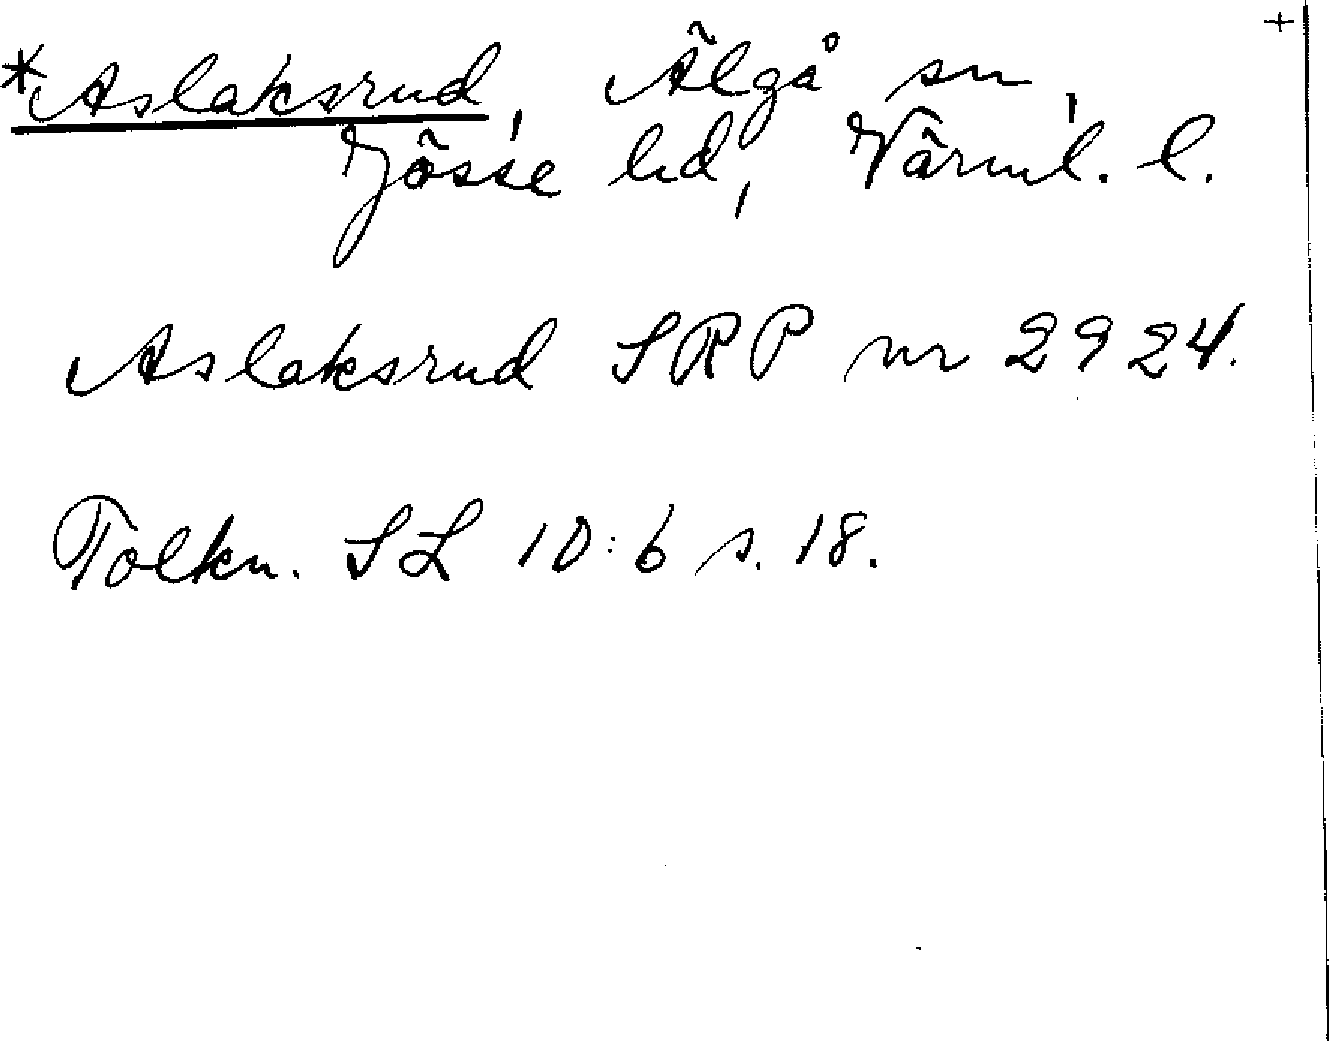 +
*Aslaksrud, Älgå sn,
Jösse hd, Värml. l.
Aslaksrud SRP nr 2924.
Tolkn. SL 10:6 s. 18.